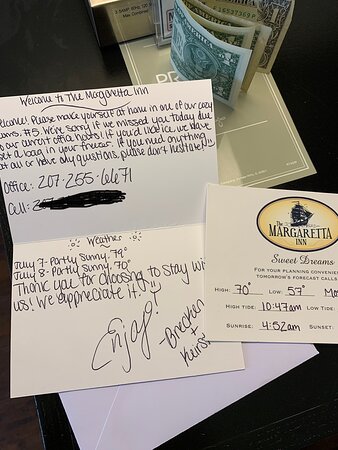 3-54MP 60Hz, 120
Max Continuous
F 16537369 F
Welcome to The Margaretta Inn
Welcome! Please make yourself at home in one of our cozy
rooms, #5. We're sorry if we missed you today due
to our current office hours! If you'd like ice, we leave
a bag in your freezer. If you need anything
at all or have any questions, please don't hesitate!!
Office: 207-255-6671
Cell: 2
Weather
July 7- Partly Sunny, 79°
July 8- Partly Sunny, 70°
Thank you for choosing to stay wi
us! We appreciate it!!
Enjoy!
-
+
The
MARGARETTA
INN
Sweet Dreams
FOR YOUR PLANNING CONVENIE
TOMORROW'S FORECAST CALLS
HIGH: 70° LOW: 57° Mo
HIGH TIDE: 10:47am LOW TIDE:
SUNRISE: 4:52am SUNSET: